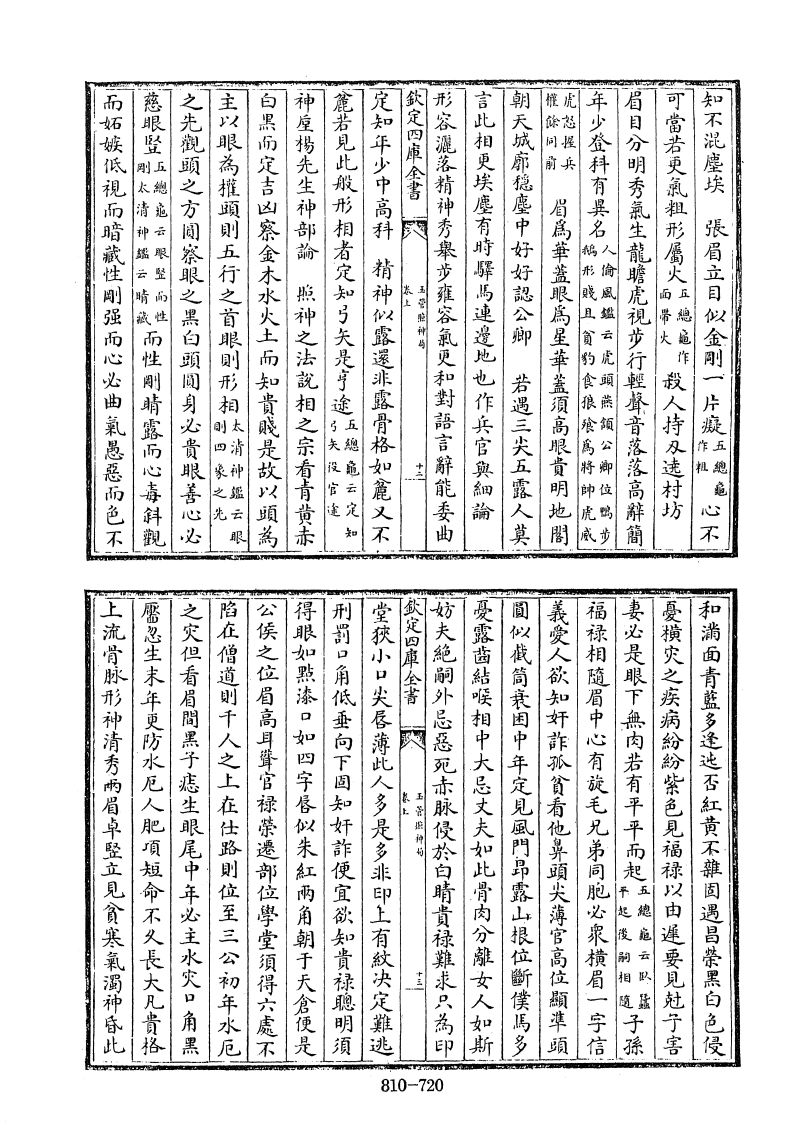 知不混塵埃　張眉立目似金剛一片癡五總龜作粗心不
可當若更氣粗形屬火五總龜作面帶火殺人持刄遶村坊
眉目分明秀氣生龍瞻虎視步行輕聲音落落高辭簡
年少登科有異名人倫風鑑云虎頭燕頷公卿位鴨步鵝形賤且貧豹食狼飡為將帥虎威
虎怒握兵權餘同前　眉為華蓋眼為星華蓋須高眼貴明地閣
朝天城廓穩塵中好好認公卿　若遇三尖五露人莫
言此相更埃塵有時驛馬連邊地也作兵官與細論
形容灑落精神秀舉步雍容氣更和對語言辭能委曲
欽定四庫全書　玉管照神局卷上　十二
定知年少中高科　精神似露還非露骨格如麄又不
麄若見此般形相者定知弓矢是亨途五總龜云定知弓矢役官途
神壓楊先生神部論　照神之法說相之宗看青黄赤
白黑而定吉凶察金木水火土而知貴賤是故以頭為
主以眼為權頭則五行之首眼則形相太清神鑑云眼則四象之先
之先觀頭之方圓察眼之黑白頭圓身必貴眼善心必
慈眼豎五總龜云眼豎而性剛太清神鑑云睛藏而性剛睛露而心毒斜觀
而妬嫉低視而暗藏性剛强而心必曲氣愚惡而色不
和滿面青藍多逢迍否紅黄不雜固遇昌榮黑白色侵
憂橫灾之疾病紛紛紫色見福禄以由遲要見尅子害
妻必是眼下無肉若有平平而起五總龜云臥蠶平起後嗣相隨子孫
福禄相隨眉中心有旋毛兄弟同胞必衆横眉一字信
義愛人欲知奸詐孤貧看他鼻頭尖薄官高位顯凖頭
圓似截筒衰困中年定見風門昂露山根位斷僕馬多
憂露齒結喉相中大忌丈夫如此骨肉分離女人如斯
妨夫絶嗣外忌惡死赤脉侵於白睛貴禄難求只為印
欽定四庫全書　玉管照神局卷上　十三
堂狹小口尖唇薄此人多是多非印上有紋决定難逃
刑罰口角低垂向下固知奸詐便宜欲知貴禄聰明須
得眼如點漆口如四字唇似朱紅兩角朝于天倉便是
公侯之位眉高耳聳官禄榮遷部位學堂須得六處不
陷在僧道則千人之上在仕路則位至三公初年水厄
之灾但看眉間黑子痣生眼尾中年必主水灾口角黑
靨忽生末年更防水厄人肥項短命不久長大凡貴格
上流骨脉形神清秀兩眉卓竪立見貧寒氣濁神昏此
810-720